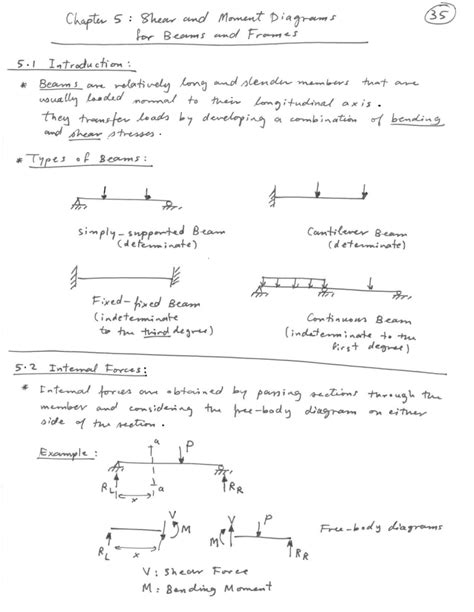 Chapter 5 : Shear and Moment Diagrams
for Beams and Frames
35
5.1 Introduction:
* Beams are relatively long and slender members that are
usually loaded normal to their longitudinal axis.
They transfer loads by developing a combination of bending
and shear stresses.
* Types of Beams:
Simply-supported Beam
(determinate)
Cantilever Beam
(determinate)
Fixed-fixed Beam
(indeterminate
to the third degree)
Continuous Beam
(indeterminate to the
first degree)
5.2 Internal Forces:
* Internal forces are obtained by passing sections through the
member and considering the free-body diagram on either
side of the section.
Example:
a
P
RL
x
a
RR
V
M
RL
x
M
V
P
RR
Free-body diagrams
V: Shear Force
M: Bending Moment